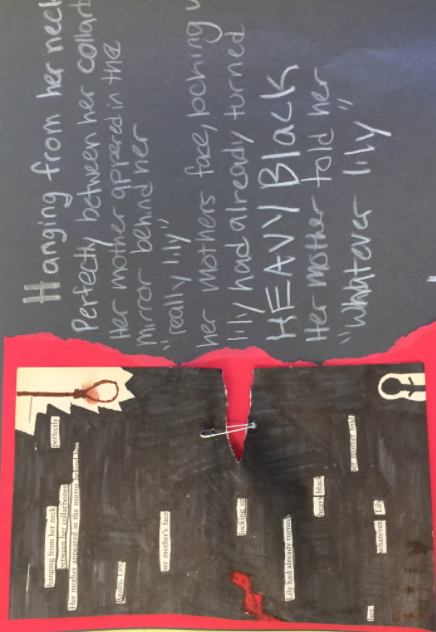 Hanging from her neck
Perfectly between her collarb
Her mother appered in the
mirror behind her
"really lily"
her mothers face, locking u
lily had already turned
HEAVY Black
Her mother told her
"whatever lily"
perfectly
hanging from her neck
between her collarbones
Her mother appeared in the mirror behind her
really, Lily
her mother's face
locking up
Lily had already turned
heavy black
her mother told
whatever Lily